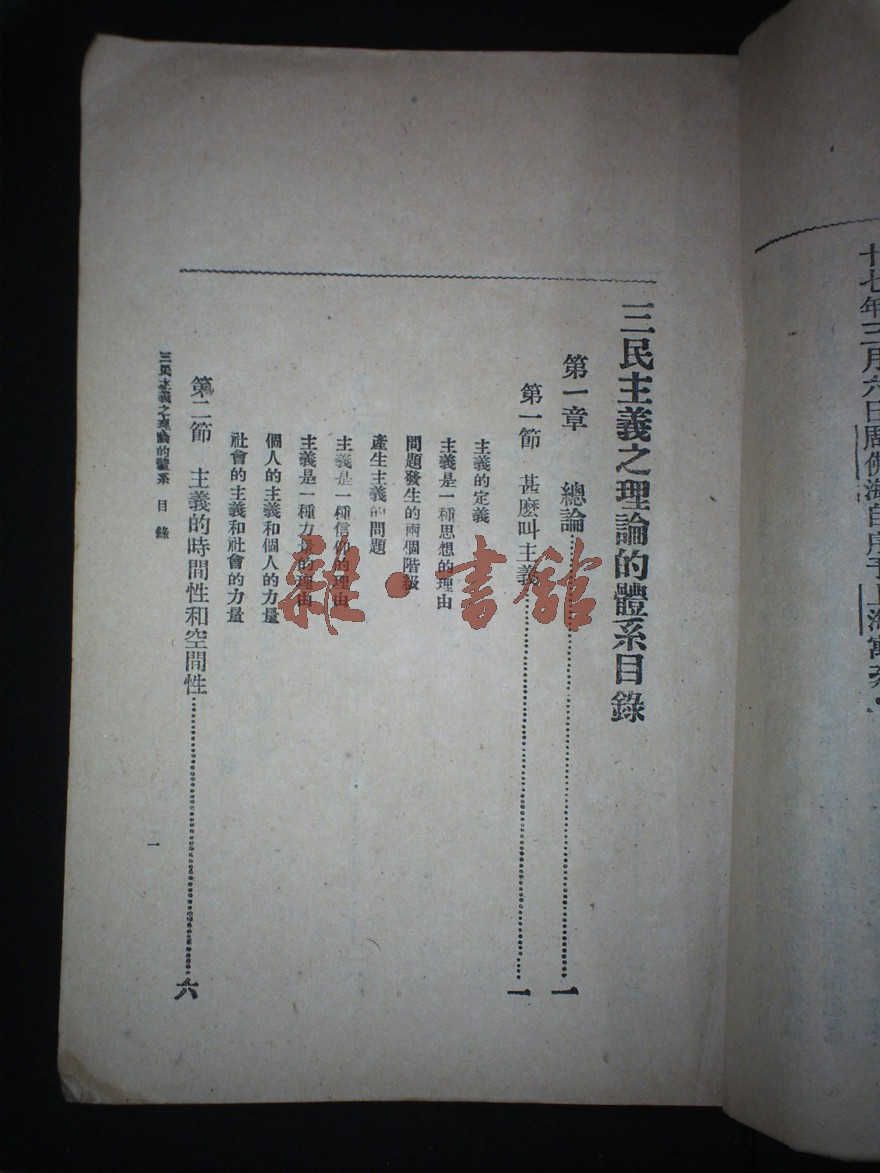 十七年三月六日周佛海自序于上海寓
三民主義之理論的體系目錄
第一章　總論……………一
第一節　甚麽叫主義……………一
主義的定義
主義是一種思想的理由
問題發生的兩個階級
產生主義的問題
主義是一種信仰的理由
主義是一種力量的理由
個人的主義和個人的力量
社會的主義和社會的力量
第二節　主義的時間性和空間性……………六
三民主義之理論的體系　目錄
一
雜·書館